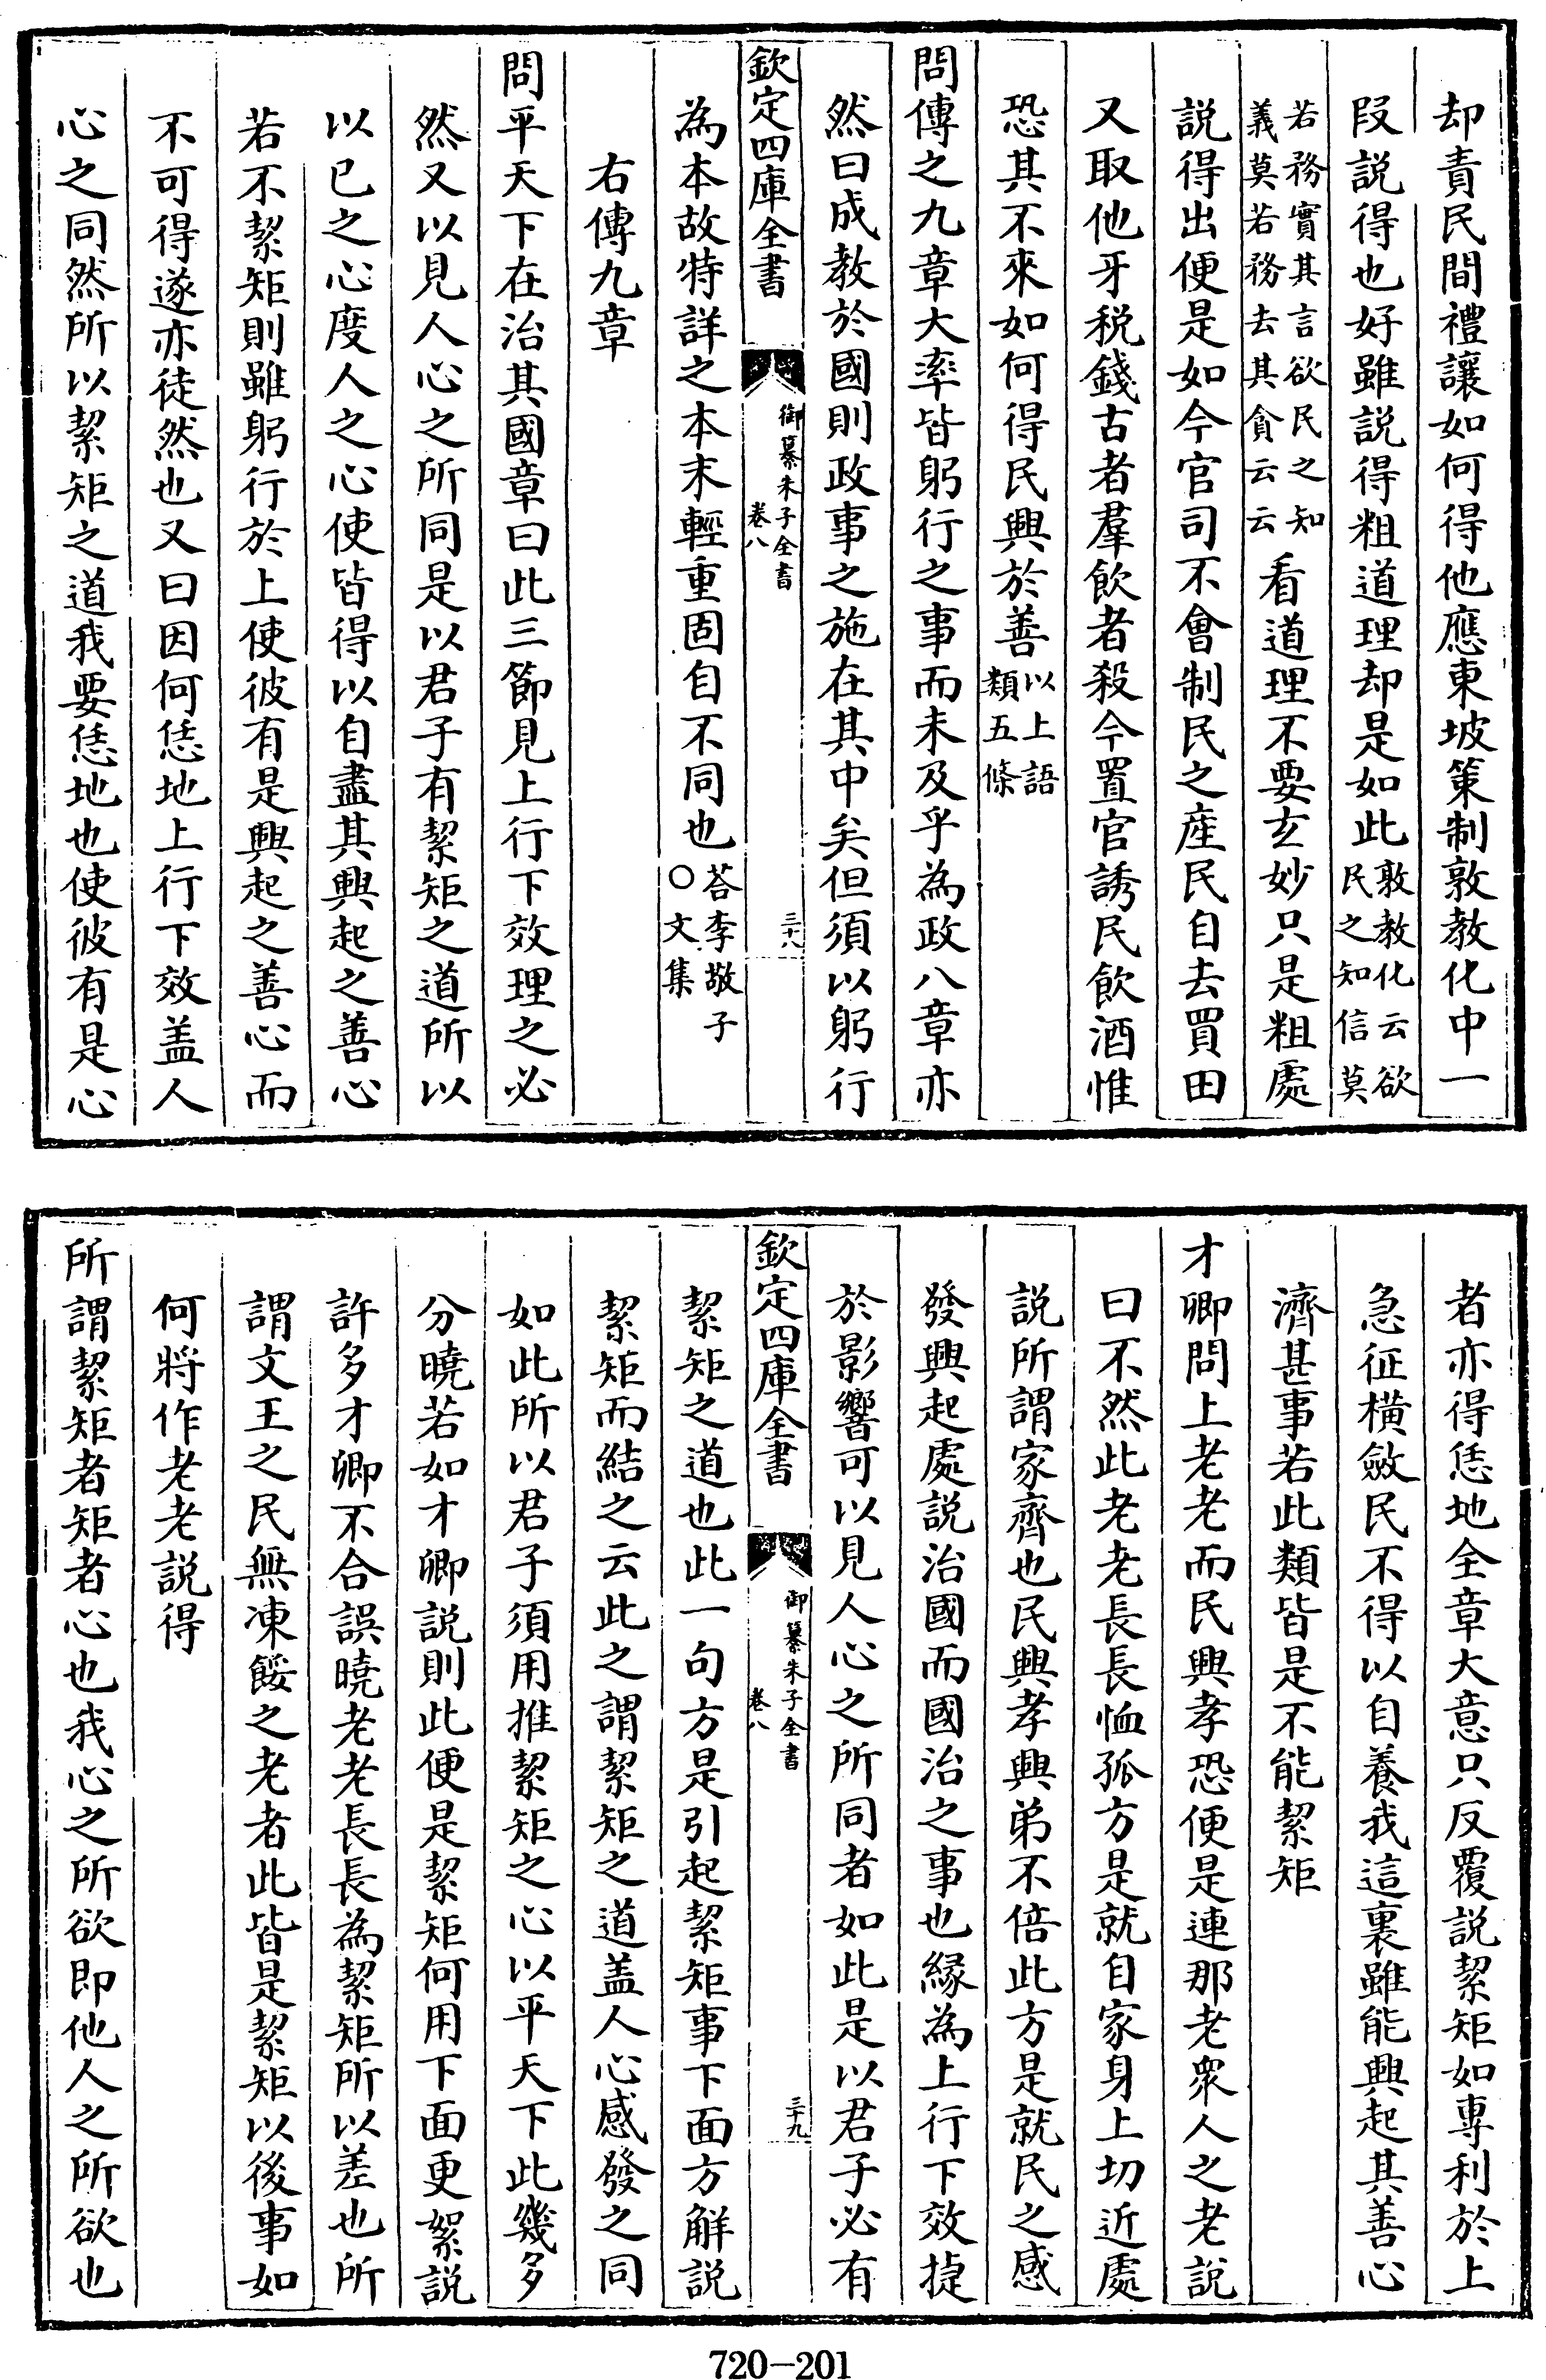 却責民間禮讓如何得他應東坡策制敦教化中一
段説得也好雖説得粗道理却是如此敦教化云欲民之知信莫
若務實其言欲民之知義莫若務去其貪云云看道理不要玄妙只是粗處
説得出便是如今官司不會制民之産民自去買田
又取他牙税錢古者羣飲者殺今置官誘民飲酒惟
恐其不來如何得民興於善以上語類五條
問傳之九章大率皆躬行之事而未及乎為政八章亦
然曰成教於國則政事之施在其中矣但須以躬行
欽定四庫全書 御纂朱子全書 卷八 三十八
為本故特詳之本末輕重固自不同也答李敬子○文集
右傳九章
問平天下在治其國章曰此三節見上行下效理之必
然又以見人心之所同是以君子有絜矩之道所以
以已之心度人之心使皆得以自盡其興起之善心
若不絜矩則雖躬行於上使彼有是興起之善心而
不可得遂亦徒然也又曰因何恁地上行下效盖人
心之同然所以絜矩之道我要恁地也使彼有是心
者亦得恁地全章大意只反覆説絜矩如專利於上
急征橫斂民不得以自養我這裏雖能興起其善心
濟甚事若此類皆是不能絜矩
才卿問上老老而民興孝恐便是連那老衆人之老説
曰不然此老老長長恤孤方是就自家身上切近處
説所謂家齊也民興孝興弟不倍此方是就民之感
發興起處説治國而國治之事也緣為上行下效捷
於影響可以見人心之所同者如此是以君子必有
欽定四庫全書 御纂朱子全書 卷八 三十九
絜矩之道也此一句方是引起絜矩事下面方解説
絜矩而結之云此之謂絜矩之道盖人心感發之同
如此所以君子須用推絜矩之心以平天下此幾多
分曉若如才卿説則此便是絜矩何用下面更絮説
許多才卿不合誤曉老老長長為絜矩所以差也所
謂文王之民無凍餒之老者此皆是絜矩以後事如
何將作老老説得
所謂絜矩者矩者心也我心之所欲即他人之所欲也
720-201